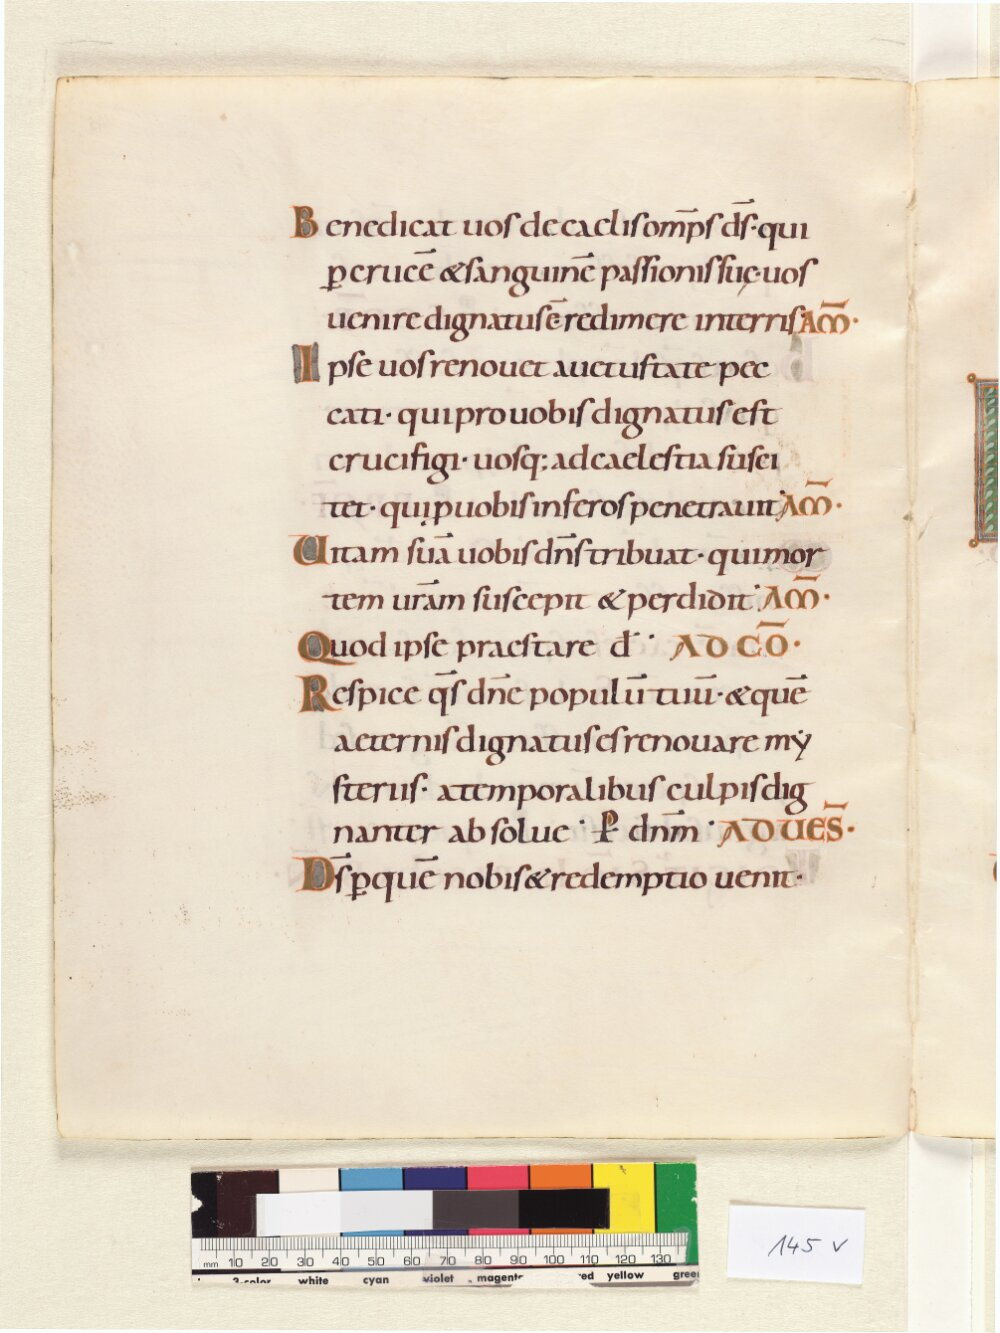 Benedicat uos de caelis om̅ps d̅s· qui
p̲ cruce̅ & sanguine̅ passionis suę uos
uenire dignatus e̅ redimere in terris AM̅·
Ipse uos renouet a uetustate pec
cati· qui pro uobis dignatus est
crucifigi· uosq; ad caelestia susci
tet· qui p̲ uobis inferos penetrauit AM̅·
Uitam sua̅ uobis dn̅s tribuat· qui mor
tem ura̅m suscepit & perdidit AM̅·
Quod ipse praestare d̅· AD CO̅·
Respice q̅s dn̅e populu̅ tuu̅· & que̅
aeternis dignatus es renouare mẏ
steriis· a temporalibus culpis dig
nanter absolue· P dnm̅· AD UES̅·
D̅s p̲ que̅ nobis & redemptio uenit·
mm 10 20 30 40 50 60 70 80 90 100 110 120 130
3-color white cyan violet magenta red yellow green
145 v